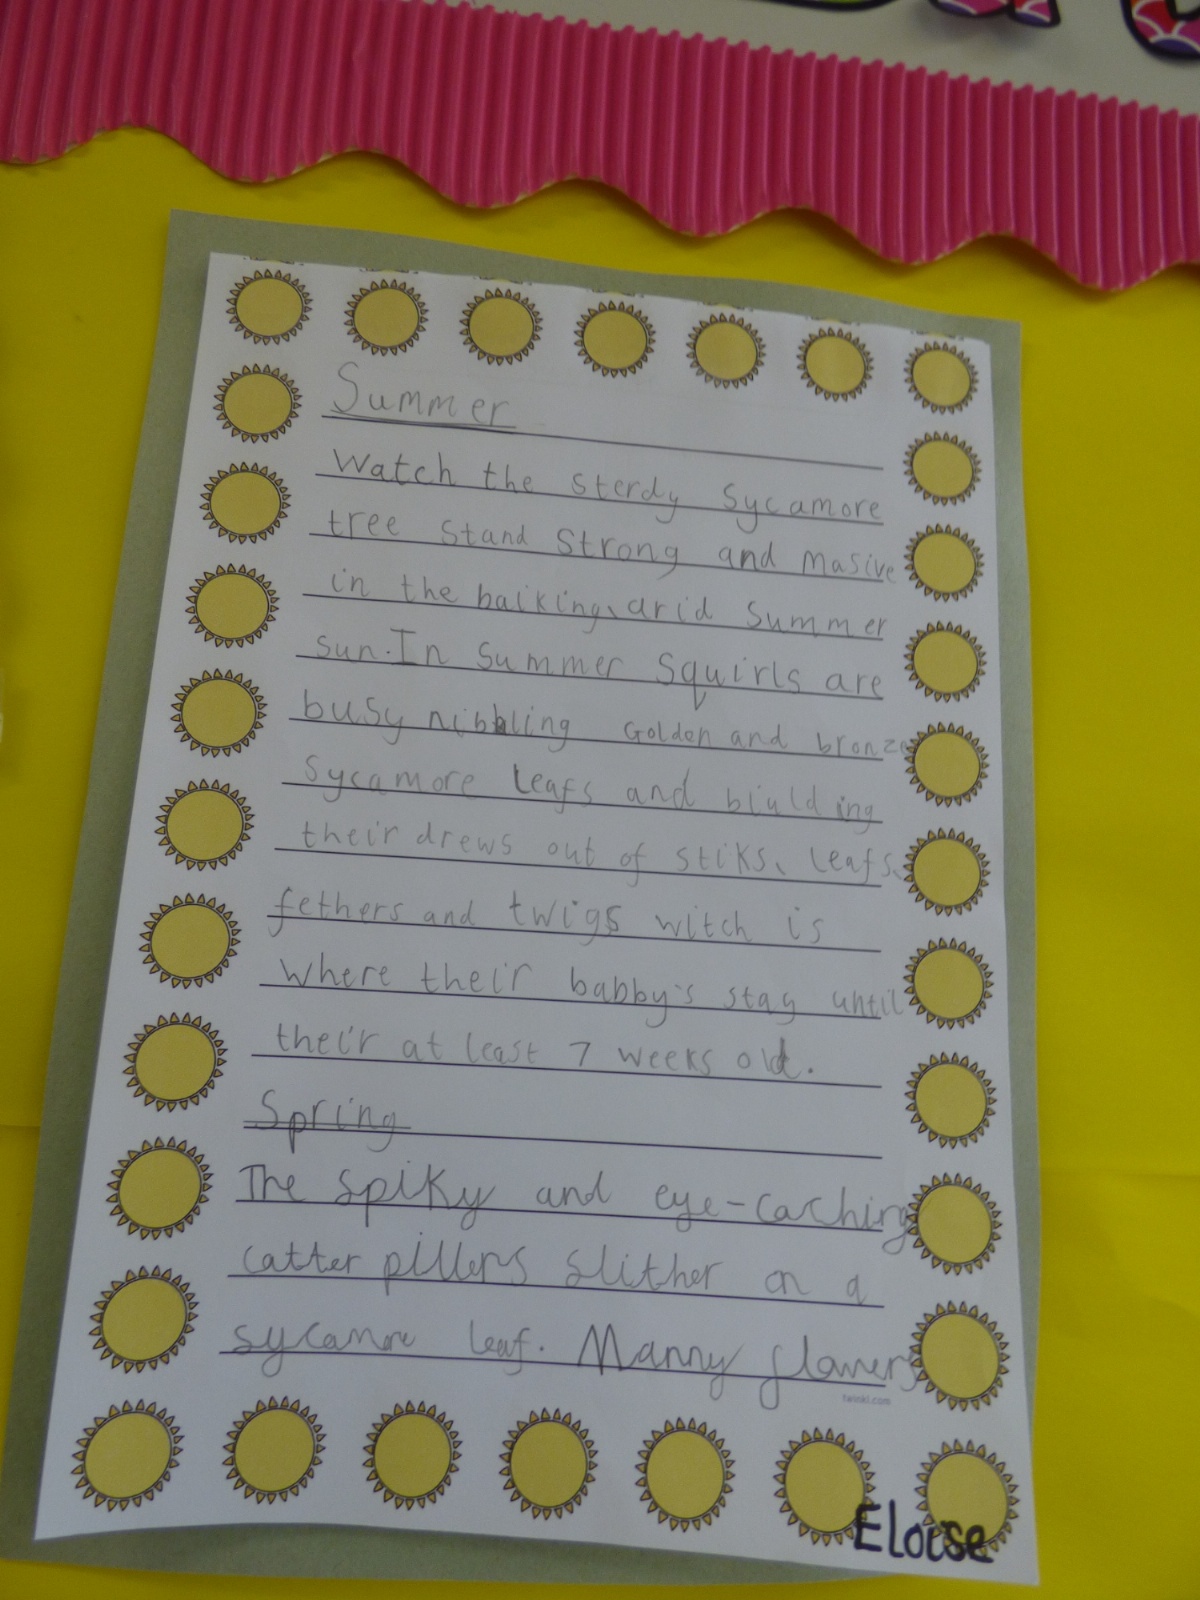 Summer
Watch the sterdy sycamore
tree stand strong and masive
in the baiking, arid summer
sun. In summer squirls are
busy nibbling Golden and bronze
sycamore leafs and biulding
their drews out of stiks, leafs,
fethers and twigs witch is
where their babby's stay until
their at least 7 weeks old.
Spring
The spiky and eye-caching
catterpillers slither on a
sycamore leaf. Manny flowers
twinkl.com
Eloise